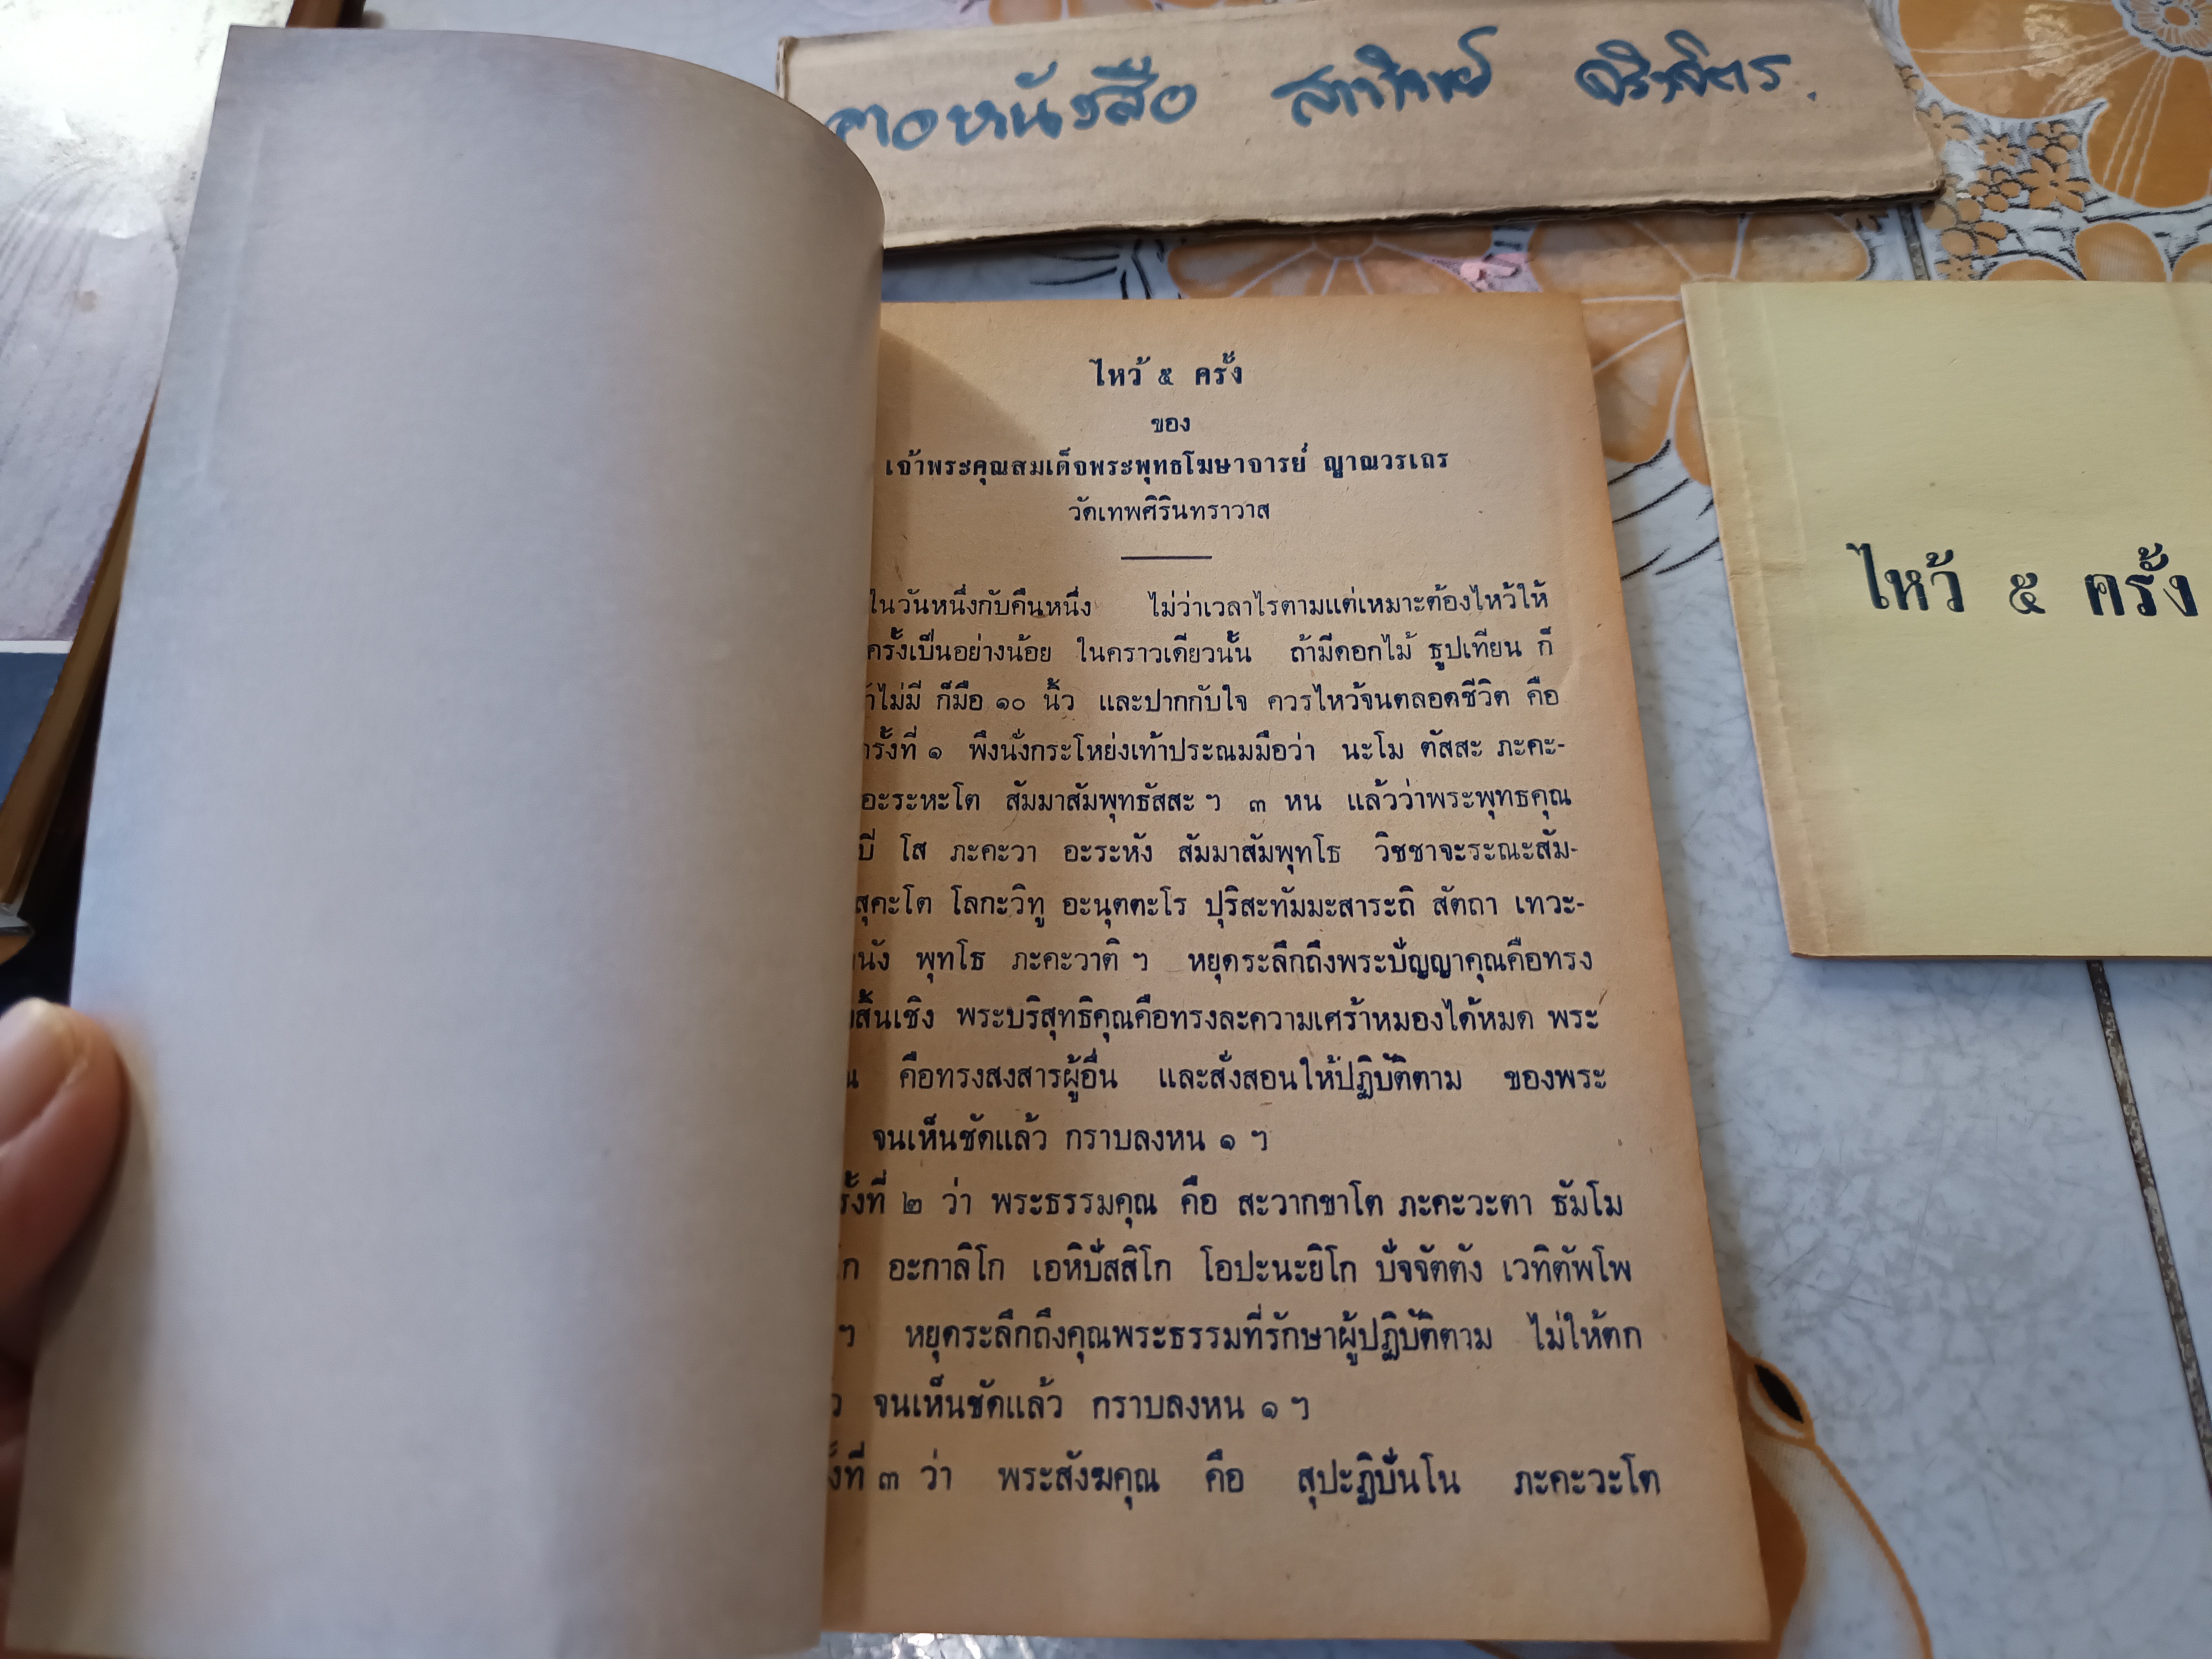 หนังสือ
ไหว้ ๕ ครั้ง
ของ
เจ้าพระคุณสมเด็จพระพุทธโฆษาจารย์ ญาณวรเถร
วัดเทพศิรินทราวาส
ในวันหนึ่งกับคืนหนึ่ง ไม่ว่าเวลาไรตามแต่เหมาะต้องไหว้ให้
ครั้งเป็นอย่างน้อย ในคราวเดียวนั้น ถ้ามีดอกไม้ ธูปเทียน ก็
ไม่มี ก็มือ ๑๐ นิ้ว และปากกับใจ ควรไหว้จนตลอดชีวิต คือ
ครั้งที่ ๑ พึงนั่งกระโหย่งเท้าประณมมือว่า นะโม ตัสสะ ภะคะ-
อะระหะโต สัมมาสัมพุทธัสสะ ฯ ๓ หน แล้วว่าพระพุทธคุณ
โส ภะคะวา อะระหัง สัมมาสัมพุทโธ วิชชาจะระณะสัม-
สุคะโต โลกะวิทู อะนุตตะโร ปุริสะทัมมะสาระถิ สัตถา เทวะ-
นัง พุทโธ ภะคะวาติ ฯ หยุดระลึกถึงพระปัญญาคุณคือทรง
สิ้นเชิง พระบริสุทธิคุณคือทรงละความเศร้าหมองได้หมด พระ
ณ คือทรงสงสารผู้อื่น และสั่งสอนให้ปฏิบัติตาม ของพระ
จนเห็นชัดแล้ว กราบลงหน ๑ ฯ
ครั้งที่ ๒ ว่า พระธรรมคุณ คือ สะวากขาโต ภะคะวะตา ธัมโม
โก อะกาลิโก เอหิปัสสิโก โอปะนะยิโก ปัจจัตตัง เวทิตัพโพ
ฯ หยุดระลึกถึงคุณพระธรรมที่รักษาผู้ปฏิบัติตาม ไม่ให้ตก
จนเห็นชัดแล้ว กราบลงหน ๑ ฯ
ที่ ๓ ว่า พระสังฆคุณ คือ สุปะฏิปันโน ภะคะวะโต
ไหว้ ๕ ครั้ง